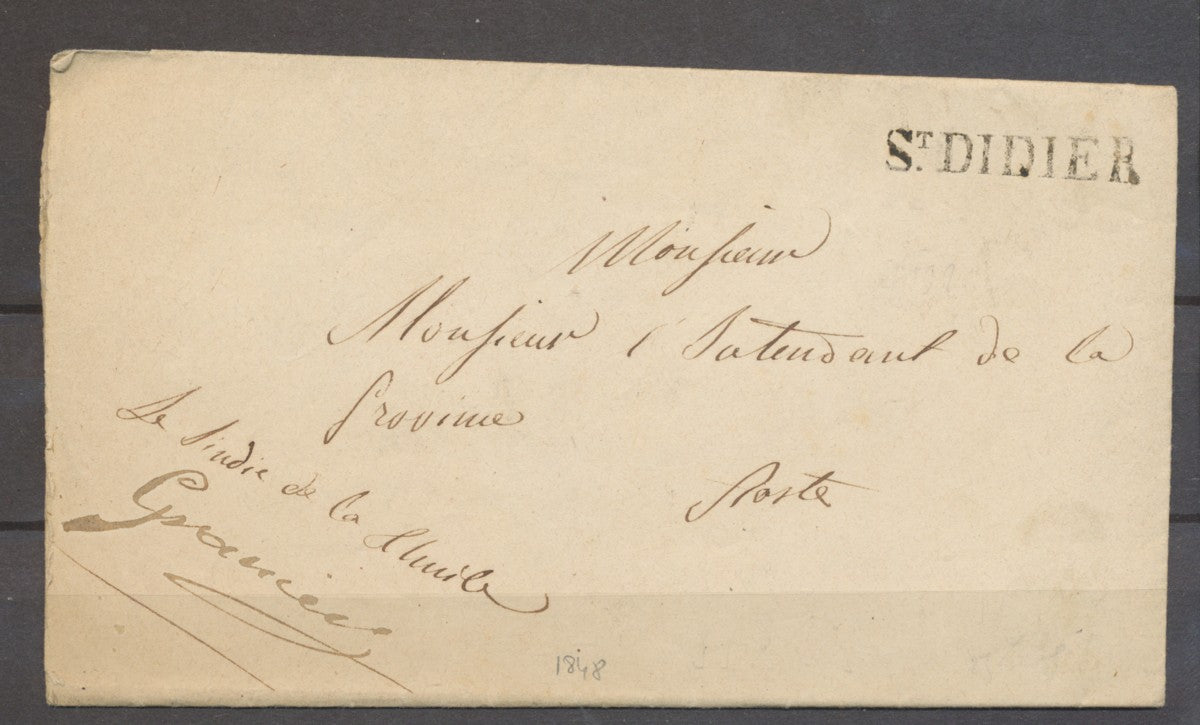 ST. DIDIER
Monsieur
Monsieur l'Intendant de la
Province
Aoste
Le Sindic de la Thuile
1848